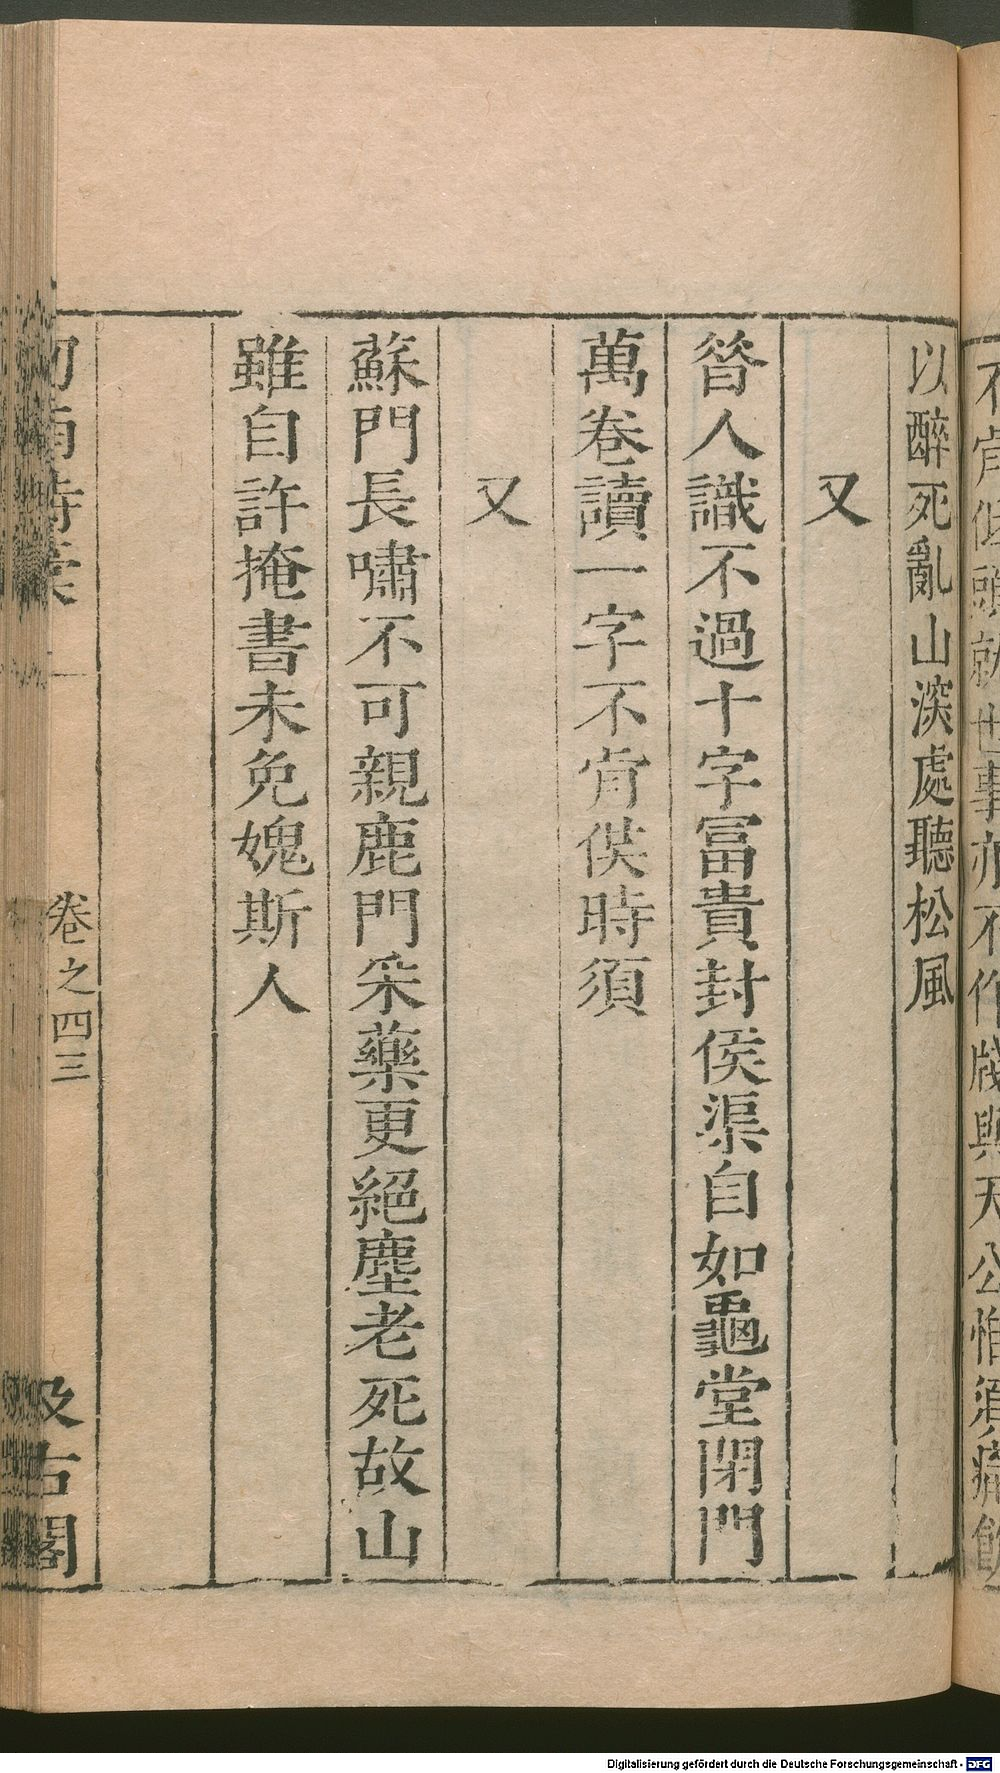 不肯低頭就世事亦不作牋與天公惟須痛飲
以醉死亂山深處聽松風
又
昝人識不過十字冨貴封侯渠自如龜堂閉門
萬卷讀一字不肯供時須
又
蘇門長嘯不可親鹿門采藥更絕塵老死故山
雖自許掩書未免媿斯人
南詩稾 卷之四三 汲古閣
Digitalisierung gefördert durch die Deutsche Forschungsgemeinschaft - DFG